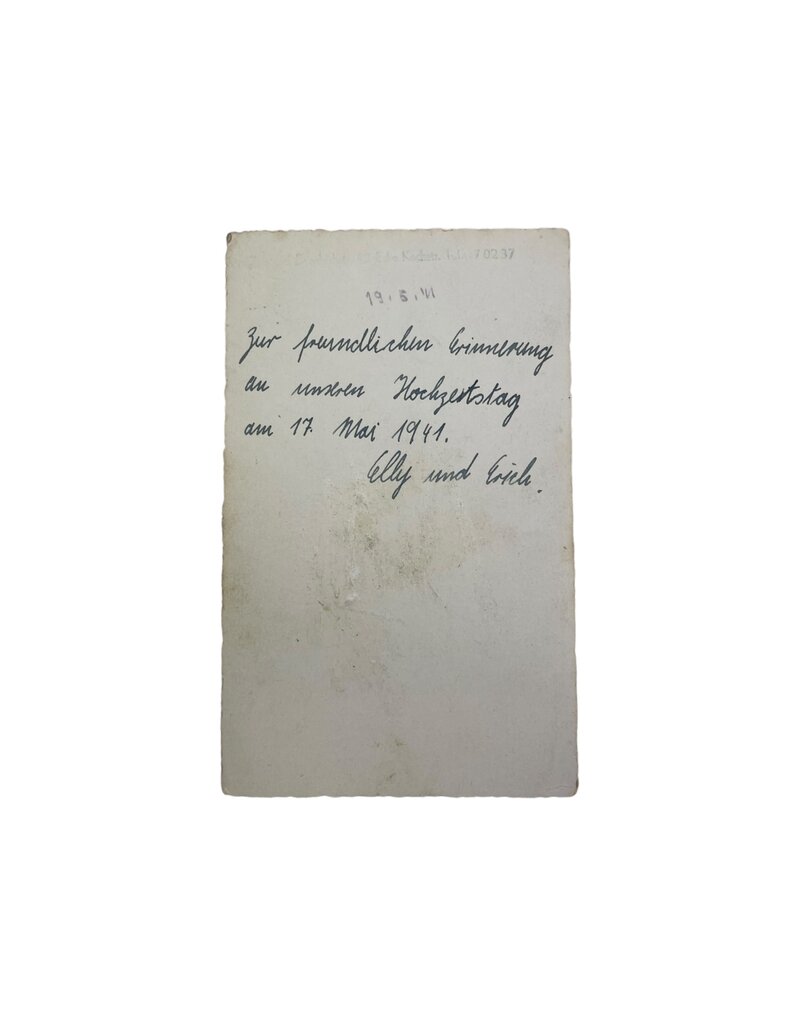 Ecke Kochstr. 7 02 37
19. 5. 41
Zur freundlichen Erinnerung
an unseren Hochzeitstag
am 17. Mai 1941.
Elly und Erich.